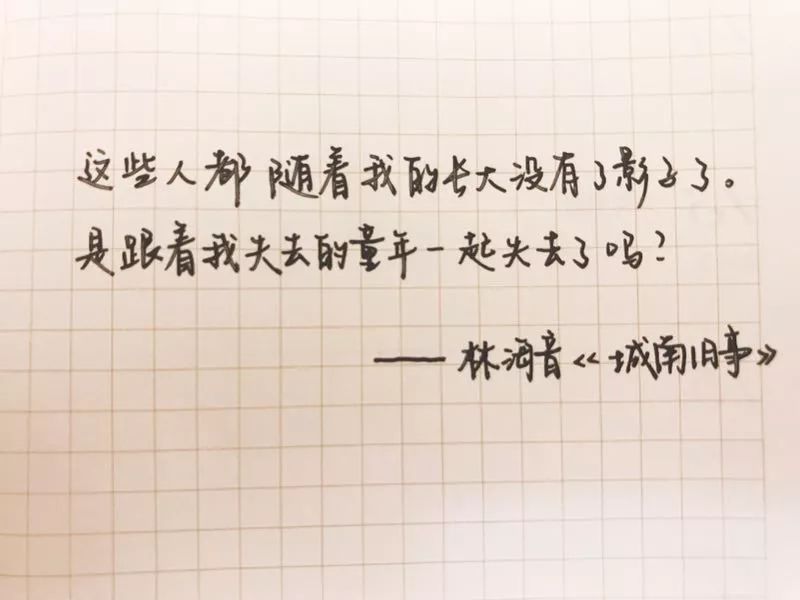 这些人都随着我的长大没有了影子了。
是跟着我失去的童年一起失去了吗?
—— 林海音《城南旧事》